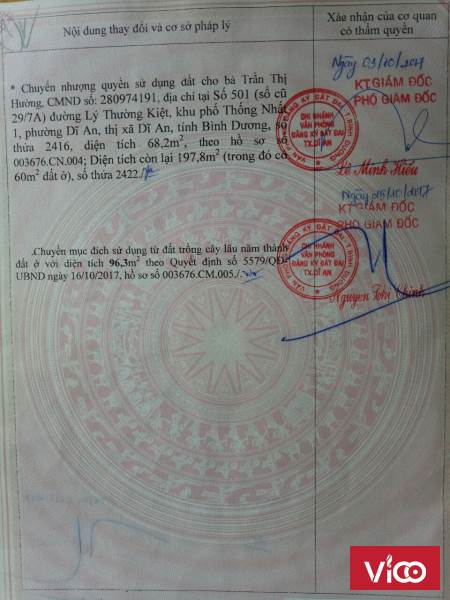 Nội dung thay đổi và cơ sở pháp lý
Xác nhận của cơ quan
có thẩm quyền
* Chuyển nhượng quyền sử dụng đất cho bà Trần Thị
Hường, CMND số: 280974191, địa chỉ tại Số 501 (số cũ
29/7A) đường Lý Thường Kiệt, khu phố Thống Nhất
1, phường Dĩ An, thị xã Dĩ An, tỉnh Bình Dương, số
thửa 2416, diện tích 68,2m², theo hồ sơ số
003676.CN.004; Diện tích còn lại 197,8m² (trong đó có
60m² đất ở), số thửa 2422./
Ngày 03/10/2017
KT.GIÁM ĐỐC
PHÓ GIÁM ĐỐC
CHI NHÁNH
VĂN PHÒNG
ĐĂNG KÝ ĐẤT ĐAI
TX.DĨ AN
Lê Minh Hiếu
.Chuyển mục đích sử dụng từ đất trồng cây lâu năm thành
đất ở với diện tích 96,3m² theo Quyết định số 5579/QĐ-
UBND ngày 16/10/2017, hồ sơ số 003676.CM.005./.
Ngày 25/10/2017
KT.GIÁM ĐỐC
PHÓ GIÁM ĐỐC
CHI NHÁNH
VĂN PHÒNG
ĐĂNG KÝ ĐẤT ĐAI
TX.DĨ AN
Nguyễn Thị Chinh
Vicoo